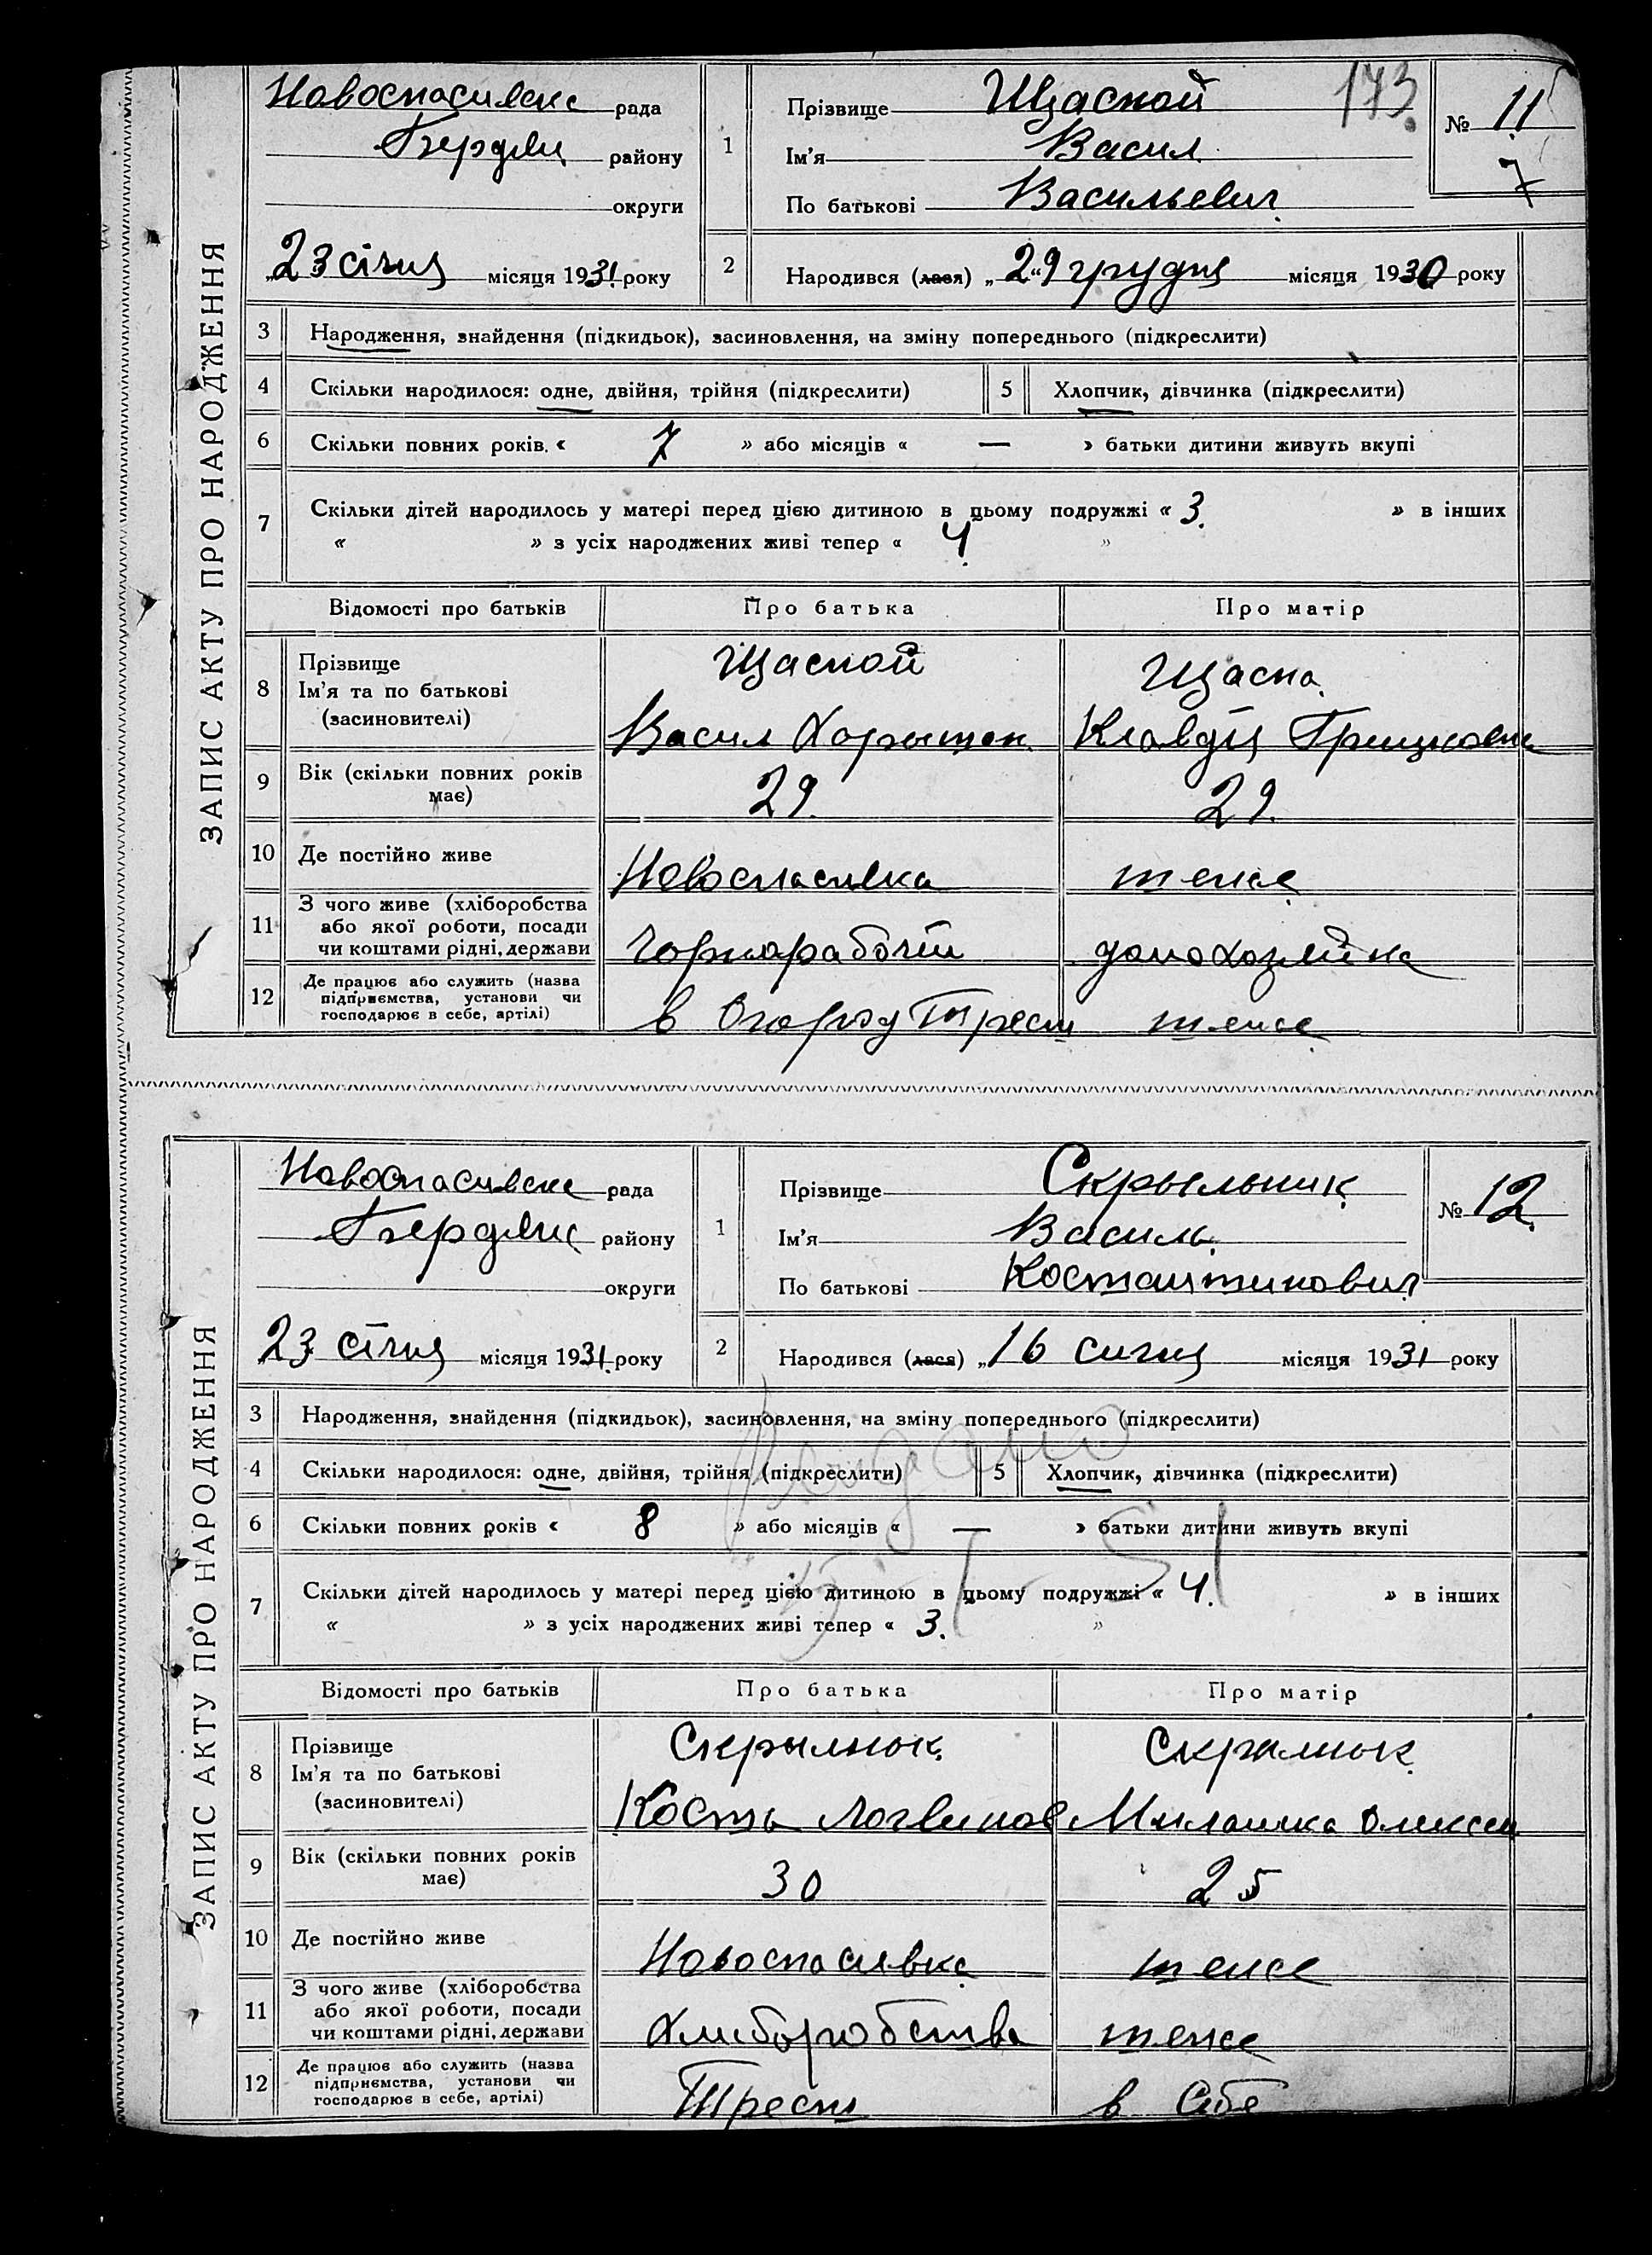 ЗАПИС АКТУ ПРО НАРОДЖЕННЯ
173
Новоспасивске рада
Бердян району
округи
23 січня місяця 1931 року
1
Прізвище Щасной
Ім'я Васил
По батькові Васильевич
№ 11
7
2
Народився (лася) „29 грудня місяця 1930 року
3 Народження, знайдення (підкидьок), засиновлення, на зміну попереднього (підкреслити)
4 Скільки народилося: одне, двійня, трійня (підкреслити) 5 Хлопчик, дівчинка (підкреслити)
6 Скільки повних років « 7 » або місяців « — » батьки дитини живуть вкупі
7 Скільки дітей народилось у матері перед цією дитиною в цьому подружжі « 3. » в інших
« » з усіх народжених живі тепер « 4. »
Відомості про батьків Про батька Про матір
8 Прізвище
Ім'я та по батькові
(засиновителі)
Щасной
Васил
Щасна
Клавдия
9 Вік (скільки повних років
має)
29. 29.
10 Де постійно живе Новоспасивка тенсе
11 З чого живе (хліборобства
або якої роботи, посади
чи коштами рідні, держави
Чорнарабочій домохозяйка
12 Де працює або служить (назва
підприємства, установи чи
господарює в себе, артілі)
в Трест тенсе
ЗАПИС АКТУ ПРО НАРОДЖЕННЯ
Новоспасивске рада
Бердянс району
округи
23 січня місяця 1931 року
1
Прізвище Скрыльник
Ім'я Василь
По батькові Костантинович
№ 12.
2
Народився (лася) „16 сичня місяця 1931 року
3 Народження, знайдення (підкидьок), засиновлення, на зміну попереднього (підкреслити)
4 Скільки народилося: одне, двійня, трійня (підкреслити) 5 Хлопчик, дівчинка (підкреслити)
6 Скільки повних років « 8 » або місяців « — » батьки дитини живуть вкупі
7 Скільки дітей народилось у матері перед цією дитиною в цьому подружжі « 4. » в інших
« » з усіх народжених живі тепер « 3. »
Відомості про батьків Про батька Про матір
8 Прізвище
Ім'я та по батькові
(засиновителі)
Скрылнюк
Кость Логвинов
Милашка Олексеи
9 Вік (скільки повних років
має)
30 25
10 Де постійно живе Новоспасивка тенсе
11 З чого живе (хліборобства
або якої роботи, посади
чи коштами рідні, держави
Хлиборобства тенсе
12 Де працює або служить (назва
підприємства, установи чи
господарює в себе, артілі)
Трест в Себе